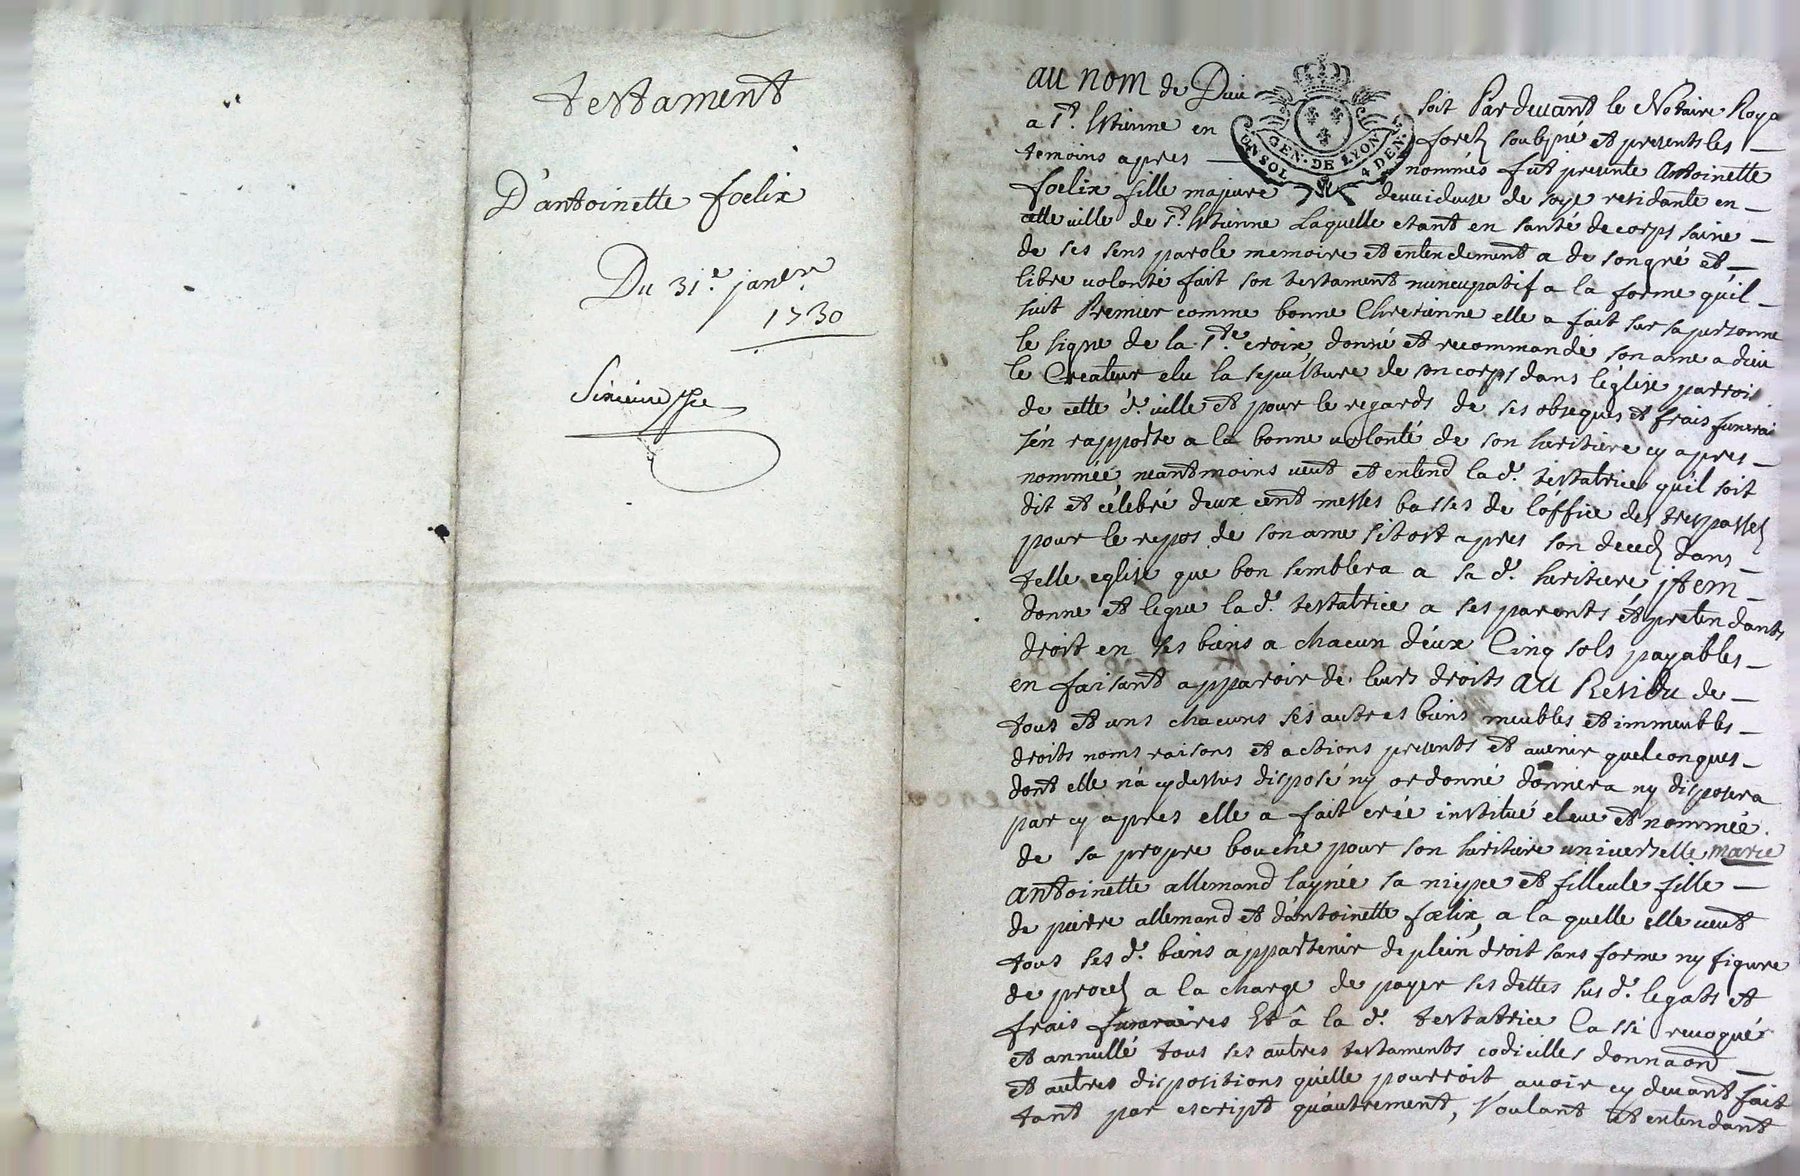 testament
D'antoinette foelix
Du 31.e janer
1730
au nom de Dieu soit Pardeuant le Notaire Roya
a St. Etienne en forez soubsné et presents les
temoins apres nommés fut presente Antoinette
foelix fille majeure deuuideuse de soye residante en
cette uille de St. Etienne Laquelle etant en santé de corps saine
de ses sens parole memoire et entendement a de son gré et
libre uolonté fait son testament nuncupatif a la forme qu'il
suit Premier comme bonne Chretienne elle a fait sur sa personne
le signe de la Ste. croix donné et recommandé son ame a dieu
le Createur elu la sepulture de son corps dans l'église parrois
de cette d. uille et pour le regards de ses obseques et frais funerai
s'en rapporte a la bonne uolonté de son heritiere cy apres
nommée neantmoins ueut et entend la d. testatrice qu'il soit
dit et célebré deux cent messes basses de l'office des trespassez
pour le repos de son ame sitost apres son decedz dans
telle eglise que bon semblera a sa d. heritiere jtem
donne et legue la d. testatrice a ses parents et pretendants
droit en ses biens a chacun d'eux Cinq sols payables
en faisant apparoir de leurs droits au Residu de
tous et uns chacuns ses autres biens meubles et immeubles
droits noms raisons et actions presents et auenir quelconques
dont elle n'a cy dessus disposé ny ordonné donnera ny disposera
par cy apres elle a fait créé institué eleue et nommée
de sa propre bouche pour son heritiere uniuerselle marie
antoinette allemand laynée sa niepce et filleule fille
de pierre allemand et d'antoinette foelix, a la quelle elle ueut
tous ses d. biens appartenir de plein droit sans forme ny figure
de procez a la charge de payer ses dettes sus d. legats et
frais funeraires Et â la d. testatrice Cassé reuoqué
et annullé tous ses autres testaments codicilles donnaon
et autres dispositions qu'elle pourroit auoir cy deuant fait
tant par escript qu'autrement, Voulant et entendant
GEN. DE LYON
UN SOL 4 DEN.